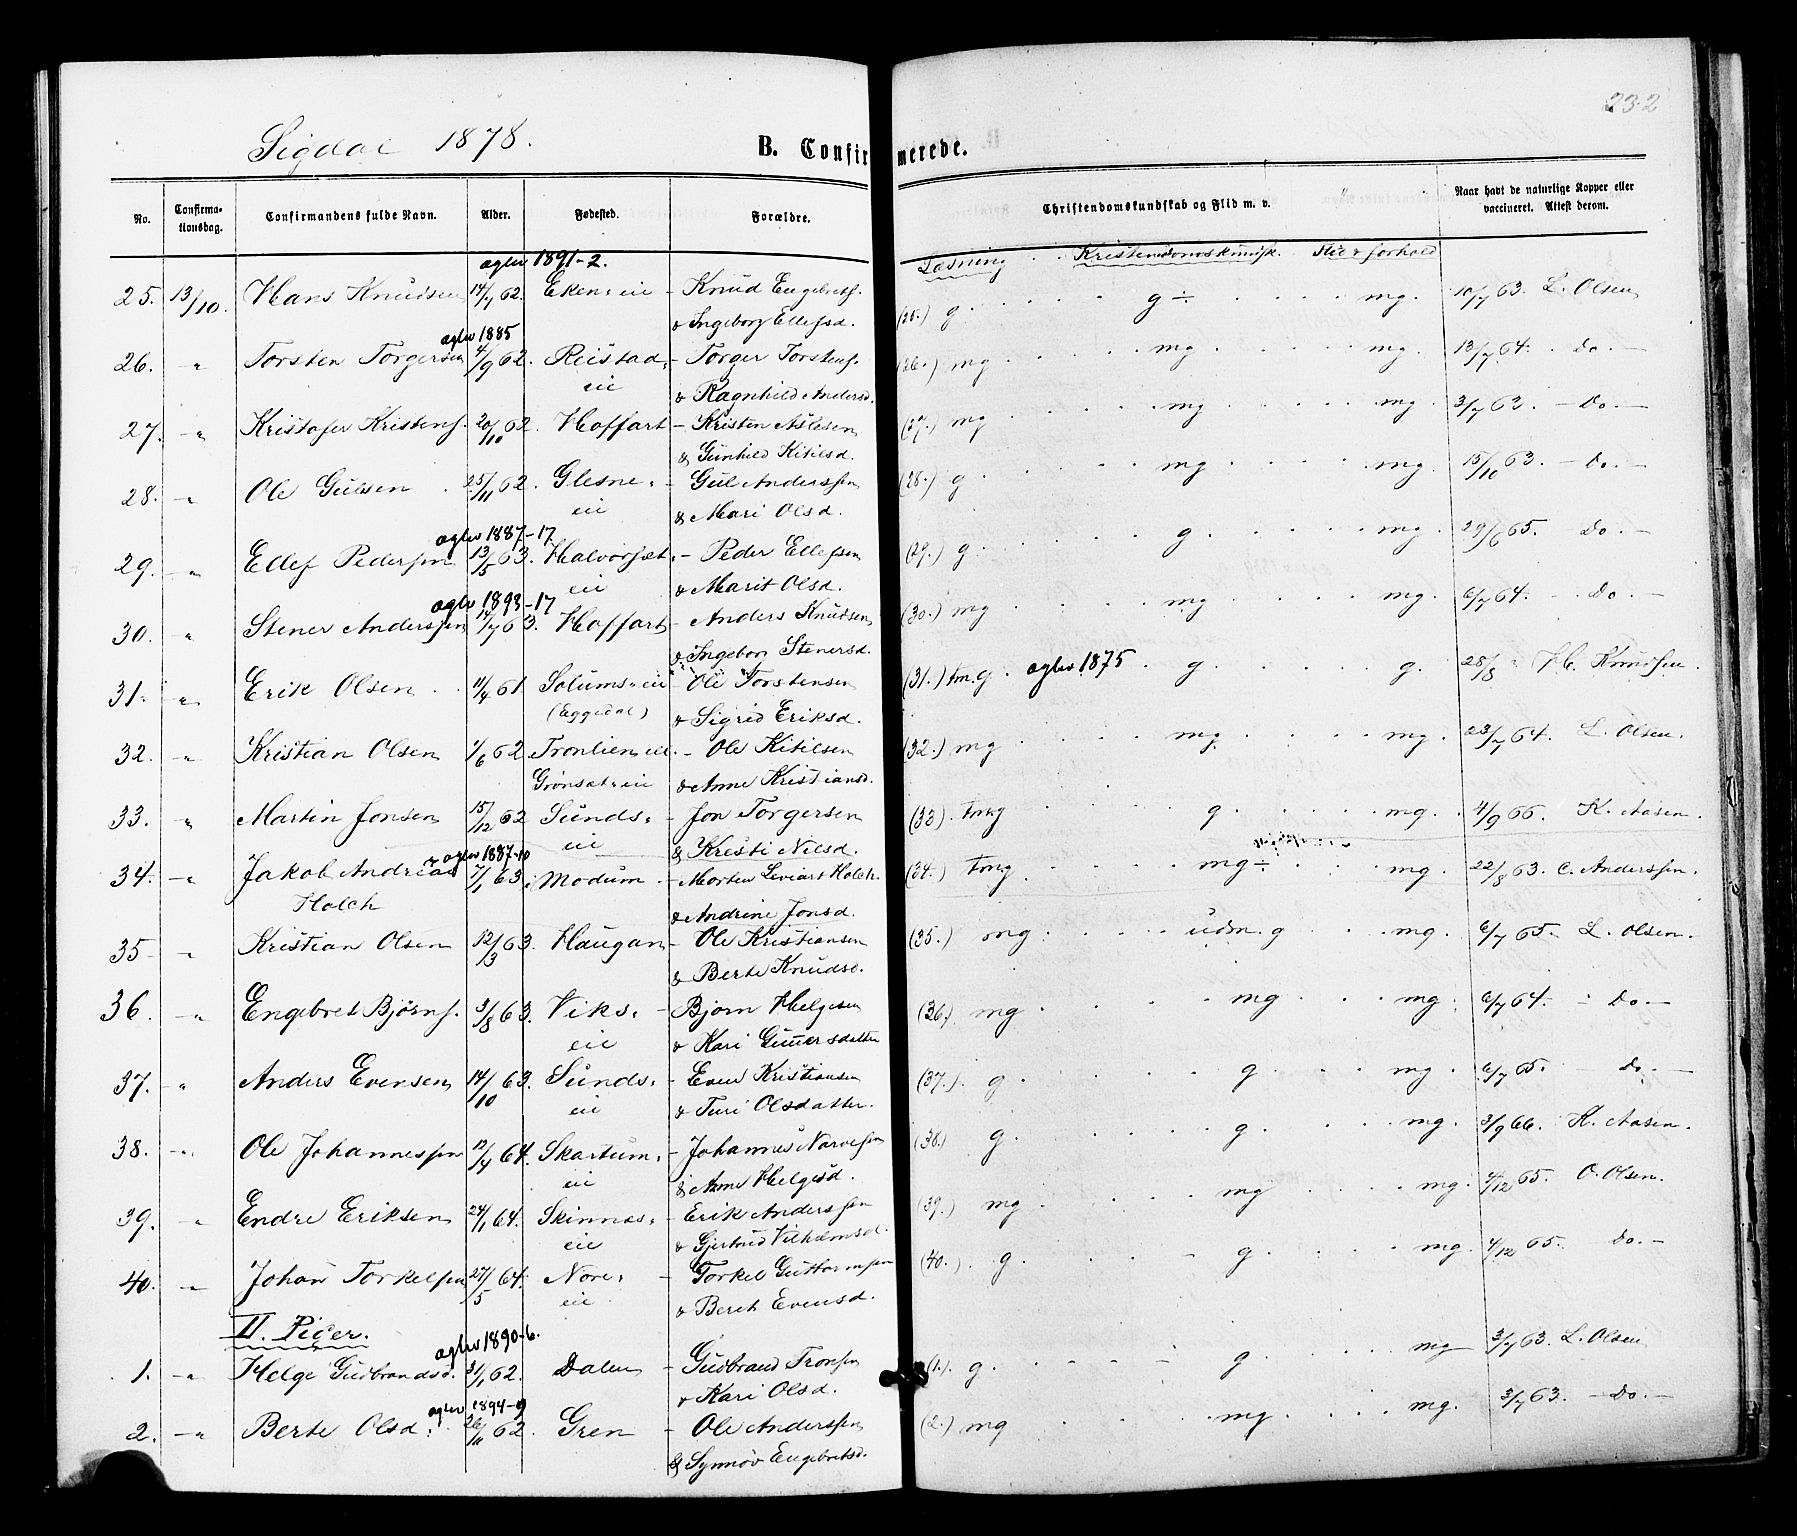 232
Sigdal 1878.
B. Confirmerede.
No. Confirmationsdag. Confirmandens fulde Navn. Alder. Fødested. Forældre. Christendomskundskab og Flid m. v. Naar havt de naturlige Kopper eller vaccineret. Attest derom.
Læsning Kristendomskundsk. Flid & forhold
aglv 1891-2.
25. 13/10. Hans Knudsen 14/4 62. Eken=eie - Knud Engebrets. (25.) g g÷ mg. 10/7 63. L. Olsen
& Ingeborg Ellefsd.
aglv 1885
26. " Torsten Torgersen 4/9 62. Reistad= - Torger Torstens. (26.) mg mg mg. 13/7 64. Do.
eie & Ragnhild Andersd.
27. " Kristofer Kristens. 20/10 62. Hoffart - Kristen Aslesen (27.) mg mg mg. 3/7 63. Do.
& Gunhild Kitilsd.
28. " Ole Gulsen 25/11 62. Glesne= - Gul Anderssen (28.) g mg mg. 15/10 63. Do.
eie & Mari Olsd.
aglv 1887-17
29. " Ellef Pederssen 13/5 63. Halvorset= - Peder Ellefsen (29.) g g mg. 29/6 65. Do.
eie & Marit Olsd.
aglv 1893-17
30. " Stener Anderssen 14/7 63. Hoffart - Anders Knudsen (30.) mg mg mg. 6/7 64. Do.
& Ingeborg Stenersd.
31. " Erik Olsen 11/4 61. Solums=eie - Ole Torstensen (31.) tmg. aglv 1875 g g. 28/8 " H. Knudsen.
(Eggedal) & Sigrid Eriksd.
32. " Kristian Olsen 1/6 62. Tronlien - Ole Kitilsen (32.) mg mg. mg. 23/7 64. L. Olsen.
Grønsæt=eie & Anne Kristiansd.
33. " Martin Jonsen 15/12 62 Sunds= - Jon Torgersen (33) tmg g mg. 4/9 66. K. Aasen.
eie & Kristi Nilsd.
aglv 1887-10
34. " Jakob Andreas 7/1 63 Modum - Morten Leviart Holch. (34.) tmg mg÷ mg. 22/8 63. C. Anderssen.
Holch & Andrine Jonsd.
35 " Kristian Olsen 12/3 63. Haugan - Ole Kristiansen (35.) mg udm. g mg. 6/7 65. L. Olsen.
& Berte Knudsd.
36. " Engebret Bjørns. 3/8 63. Viks= - Bjørn Helgesen (36.) mg mg mg. 6/7 64. Do.
eie & Kari Gunersdatter
37. " Anders Evensen 14/10 63. Sunds= - Even Kristiansen (37.) g g mg. 6/7 65. Do.
eie & Turi Olsdatter.
38. " Ole Johannessen 12/4 64. Skartum= - Johannes Narvesen (38.) g g. mg. 3/9 66. K. Aasen.
eie & Anne Helgesd.
39. " Endre Eriksen 24/1 64. Skinnas= - Erik Anderssen (39.) mg mg mg. 4/12 65. O. Olsen.
eie & Gjertrud Vilhelmsd.
40. " Johan Torkelsen 27/5 64. Nore= - Torkel Guttormsen (40.) g g mg. 4/12 65. Do.
eie & Berit Evensd.
II. Piger.
aglv 1890-6.
1. " Helge Gudbrandsd. 31/1 62. Dalen - Gudbrand Tronsen (1.) g g mg 3/7 63. L. Olsen
& Kari Olsd.
aglv 1894-9
2. " Berte Olsd. 26/11 62. Gren - Ole Anderssen (2.) mg mg mg. 3/7 63. Do.
& Synnøv Engebretsd.